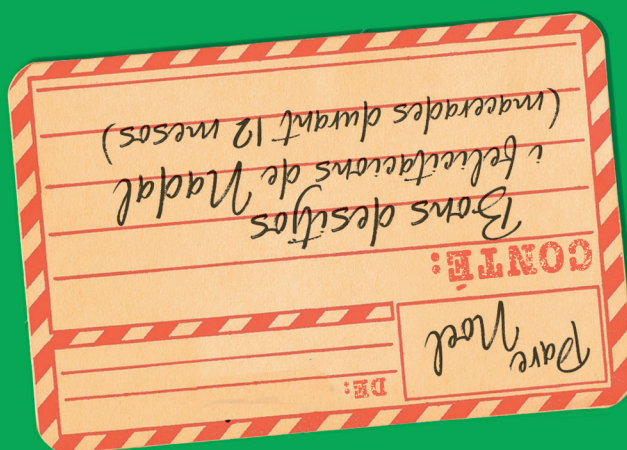 Pare
Noel
DE:
CONTÉ:
Bons desitjos
i felicitacions de Nadal
(macerades durant 12 mesos)